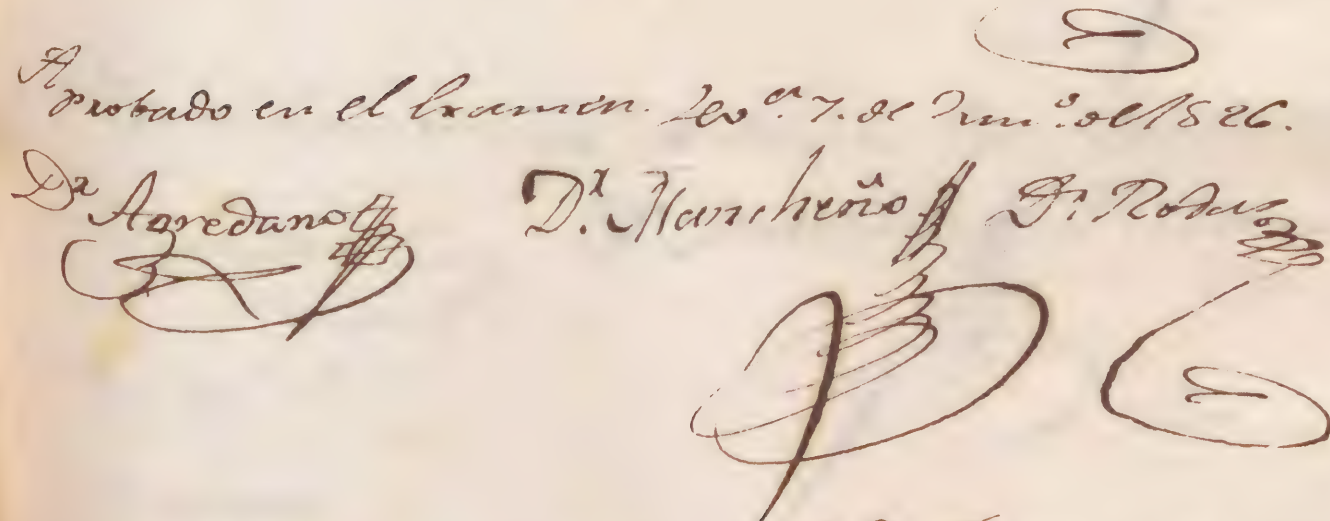 Aprobado en el Examen. 7. de Jun.º de 1826.
Dr Agredano Dr. Mancheño Dr. Rodas